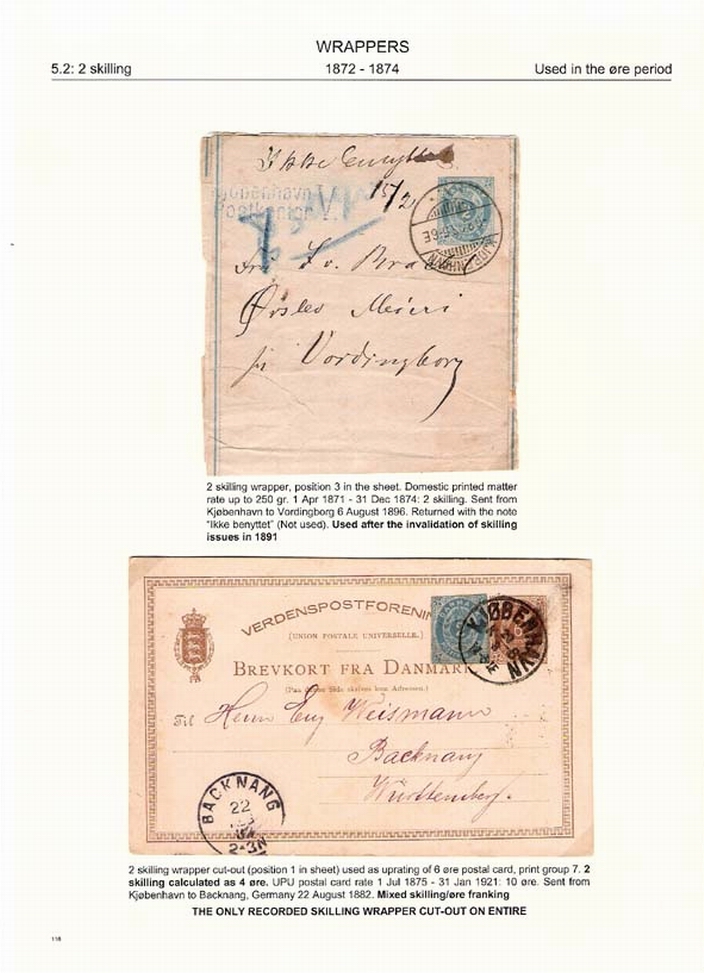 WRAPPERS
5.2: 2 skilling 1872 - 1874 Used in the øre period
Ikke benyttet
15/2
Kjøbenhavn
Postkontor V.
KJØBENHAVN
Frk Lv.
Ørslev Meieri
pr Vordingborg
2 skilling wrapper, position 3 in the sheet. Domestic printed matter
rate up to 250 gr. 1 Apr 1871 - 31 Dec 1874: 2 skilling. Sent from
Kjøbenhavn to Vordingborg 6 August 1896. Returned with the note
"Ikke benyttet" (Not used). Used after the invalidation of skilling
issues in 1891
VERDENSPOSTFORENIN
(UNION POSTALE UNIVERSELLE.)
KJØBENHAVN
BREVKORT FRA DANMARK
(Paa denne Side skrives kun Adressen.)
Til Herrn Eug Weismann
Backnang
Württemberg.
BACKNANG
22
2-3N
2 skilling wrapper cut-out (position 1 in sheet) used as uprating of 6 øre postal card, print group 7. 2
skilling calculated as 4 øre. UPU postal card rate 1 Jul 1875 - 31 Jan 1921: 10 øre. Sent from
Kjøbenhavn to Backnang, Germany 22 August 1882. Mixed skilling/øre franking
THE ONLY RECORDED SKILLING WRAPPER CUT-OUT ON ENTIRE
118